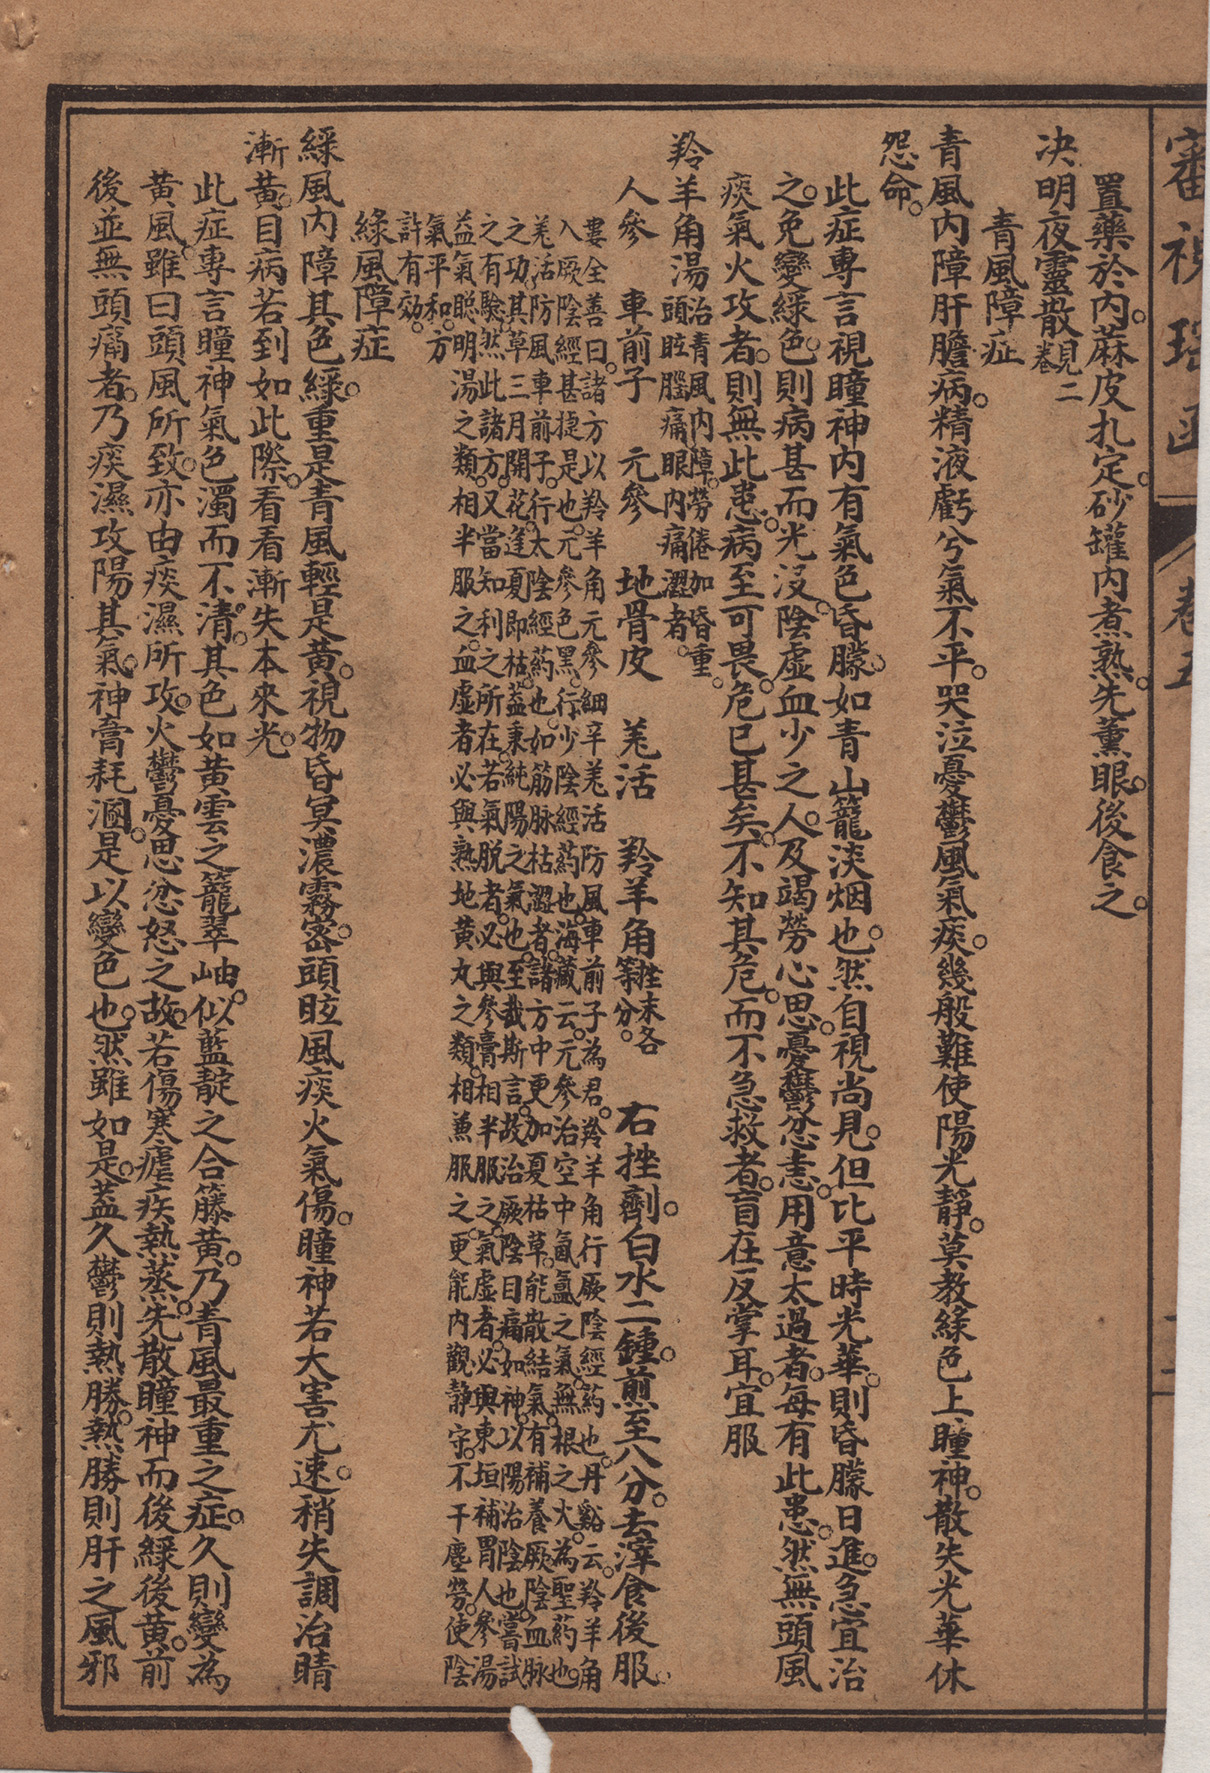 審視瑤函
卷五
置藥於內。蔴皮扎定。砂罐內煮熟。先薰眼。後食之。
決明夜靈散見二卷
青風障症
青風內障肝膽病。精液虧兮氣不平。哭泣憂鬱風氣痰。幾般難使陽光靜。莫教綠色上瞳神。散失光華休
怨命。
此症專言視瞳神內有氣色昏朦。如青山籠淡烟也。然自視尚見。但比平時光華。則昏朦日進。急宜治
之。免變綠色。則病甚而光沒。陰虛血少之人。及竭勞心思。憂鬱忿恚。用意太過者。每有此患。然無頭風
痰氣火攻者。則無此患。病至可畏。危已甚矣。不知其危。而不急救者。盲在反掌耳。宜服
羚羊角湯治青風內障。勞倦加昏重。
頭眩腦痛眼內痛澀者。
人參 車前子 元參 地骨皮 羌活 羚羊角挫末各
等分。 右挫劑。白水二鍾。煎至八分。去滓食後服
婁全善曰。諸方以羚羊角元參細辛羌活防風車前子為君。羚羊角行厥陰經药也。丹谿云。羚羊角
入厥陰經甚捷是也。元參色黑。行少陰經药也。海藏云。元參治空中氤氳之氣。無根之火。為聖药也。
羌活防風車前子。行太陰經药也。如筋脉枯澀者。諸方中更加夏枯草。能散結氣。有補養厥陰血脉
之功。其草三月開花。逢夏即枯。蓋秉純陽之氣也。至哉斯言。故治厥陰目痛如神。以陽治陰也。嘗試
之有驗。然此諸方。又當知利之所在。若氣脫者。必與參膏相半服之。氣虛者。必與東垣補胃人參湯
益氣聰明湯之類。相半服之。血虛者必與熟地黄丸之類。相兼服之。更能內觀靜守。不干塵勞。使陰
氣平和。方
許有效。
綠風障症
綠風內障其色綠。重是青風輕是黄。視物昏冥濃霧密。頭眩風痰火氣傷。瞳神若大害尤速。稍失調治睛
漸黄。目病若到如此際。看看漸失本來光。
此症專言瞳神氣色濁而不清。其色如黄雲之籠翠岫。似藍靛之合籐黄。乃青風最重之症。久則變為
黄風。雖曰頭風所致。亦由痰濕所攻。火鬱憂思忿怒之故。若傷寒瘧疾熱蒸。先散瞳神而後綠後黄。前
後並無頭痛者。乃痰濕攻陽。其氣。神膏耗溷。是以變色也。然雖如是。蓋久鬱則熱勝。熱勝則肝之風邪